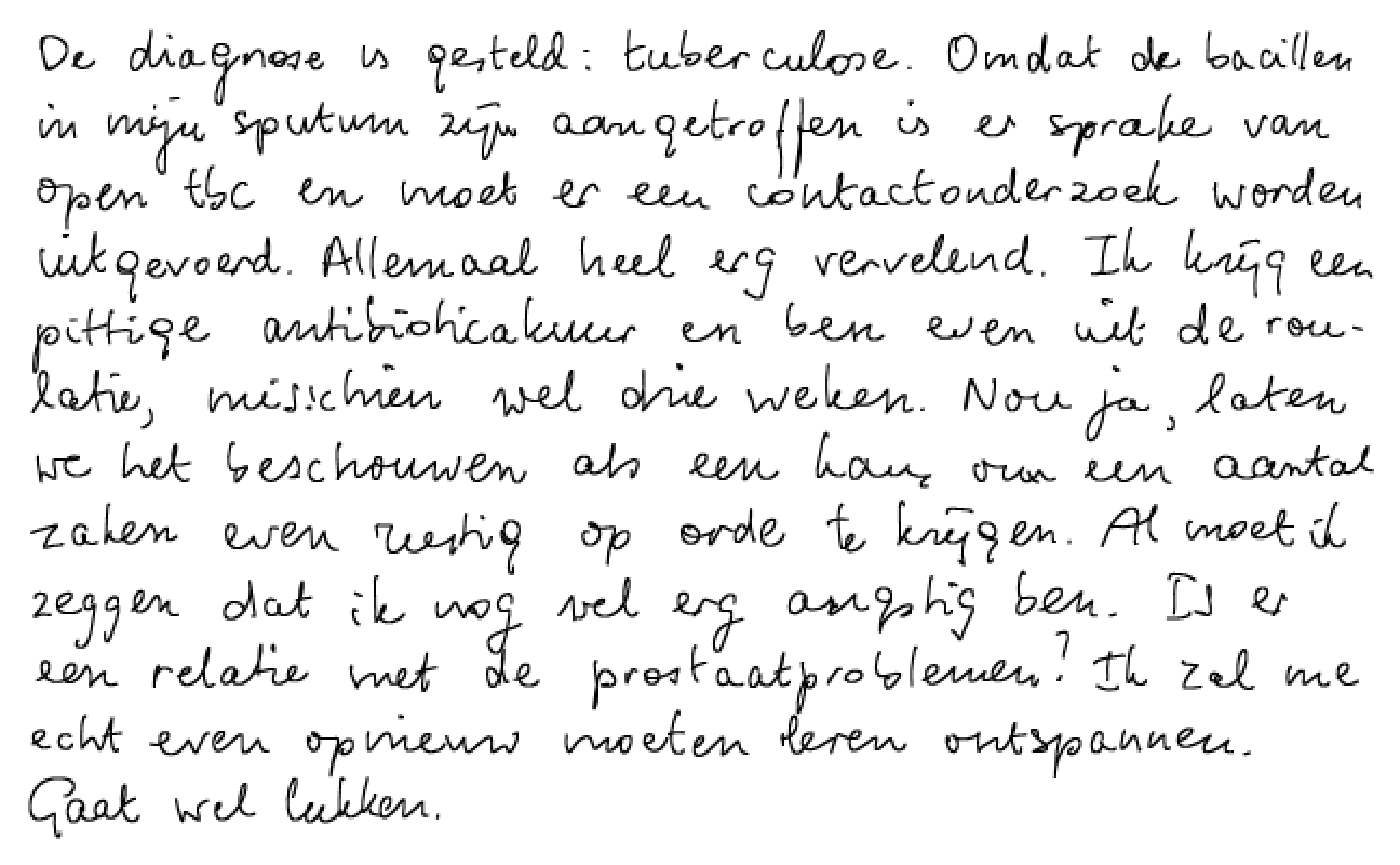 De diagnose is gesteld: tuberculose. Omdat de bacillen
in mijn sputum zijn aangetroffen is er sprake van
open tbc en moet er een contactonderzoek worden
uitgevoerd. Allemaal heel erg vervelend. Ik krijg een
pittige antibioticakuur en ben even uit de rou-
latie, misschien wel drie weken. Nou ja, laten
we het beschouwen als een kans om een aantal
zaken even rustig op orde te krijgen. Al moet ik
zeggen dat ik nog wel erg angstig ben. Is er
een relatie met de prostaatproblemen? Ik zal me
echt even opnieuw moeten leren ontspannen.
Gaat wel lukken.